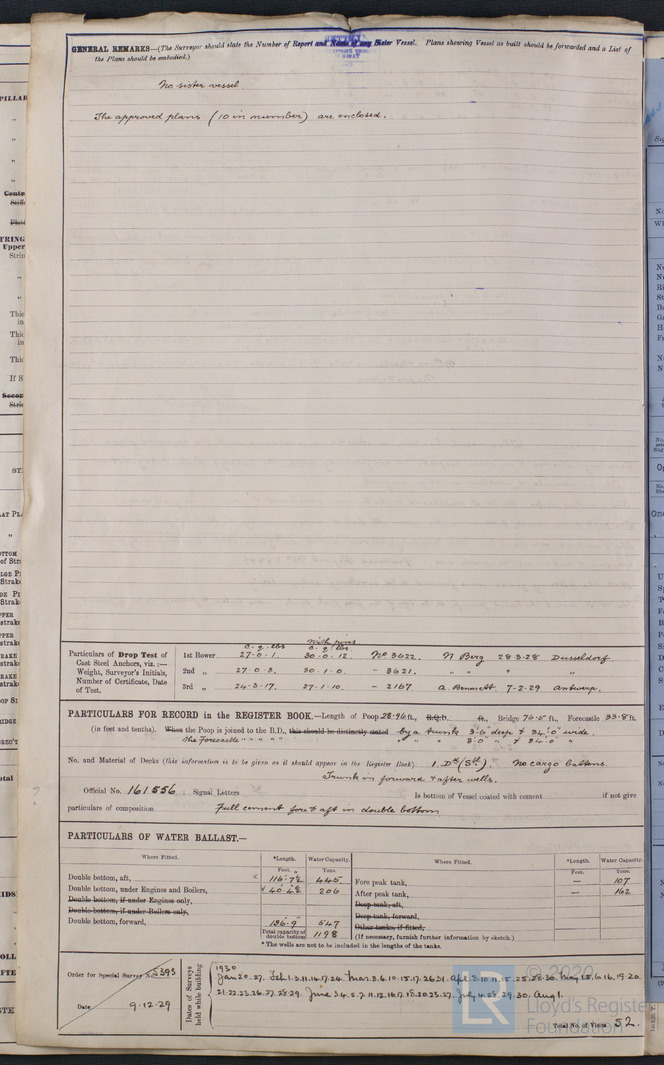 GENERAL REMARKS—(The Surveyor should state the Number of Report and Name of any Sister Vessel. Plans showing Vessel as built should be forwarded and a List of
the Plans should be embodied.)
No sister vessel
The approved plans (10 in number) are enclosed.
With pins
c - q - lbs c - q - lbs
Particulars of Drop Test of
Cast Steel Anchors, viz. :—
Weight, Surveyor's Initials,
Number of Certificate, Date
of Test.
1st Bower 27-0-1. 30-0-12. No 3622. N Berg 28.3.28 Dusseldorf.
2nd „ 27-0-3. 30-1-0. - 3621. " " " "
3rd „ 24-3-17. 27-1-10. - 2167 a. Bennett. 7-2-29 antwerp.
PARTICULARS FOR RECORD in the REGISTER BOOK.—Length of Poop 28.96 ft., R.Q.D. ft., Bridge 76.5 ft., Forecastle 33.8 ft.
(in feet and tenths). When the Poop is joined to the B.D., this should be distinctly stated by a trunk 3'.6" deep & 34'.0" wide.
The Forecastle " " " " " " 3'.0" & 34'.0" "
No. and Material of Decks (this information is to be given as it should appear in the Register Book) 1. Dk (Stl). No cargo battens.
Trunk in forward & after wells.
Official No. 161556 Signal Letters Is bottom of Vessel coated with cement if not give
particulars of composition Full cement fore & aft in double bottom
PARTICULARS OF WATER BALLAST.—
Where Fitted. *Length. Water Capacity. Where Fitted. *Length. Water Capacity.
Feet. Tons. Feet. Tons.
Double bottom, aft, 116'-7½ 445 Fore peak tank, — 107
Double bottom, under Engines and Boilers, 40-4½ 206 After peak tank, — 162
Double bottom, if under Engines only, Deep tank, aft,
Double bottom, if under Boilers only, Deep tank, forward,
Double bottom, forward, 136'-9" 547 Other tanks, if fitted,
Total capacity of double bottom 1198 (If necessary, furnish further information by sketch.)
* The wells are not to be included in the lengths of the tanks.
Order for Special Survey No. 5393
Date 9.12.29
Dates of Surveys
held while building
1930
Jan 20.27. Feb. 1.3.11.14.17.24. Mar. 3.6.10.15.17.26.31. Apl. 8.10.11.15.25.28.30. May 1.5.6.16.19.20.
21.22.23.26.27.28.29. June 3.4.5.7.11.12.16.17.18.20.23.27. July 4.28.29.30. Aug 1.
Total No. of Visits 52.
© 2020
LR
Lloyd's Register
Foundation